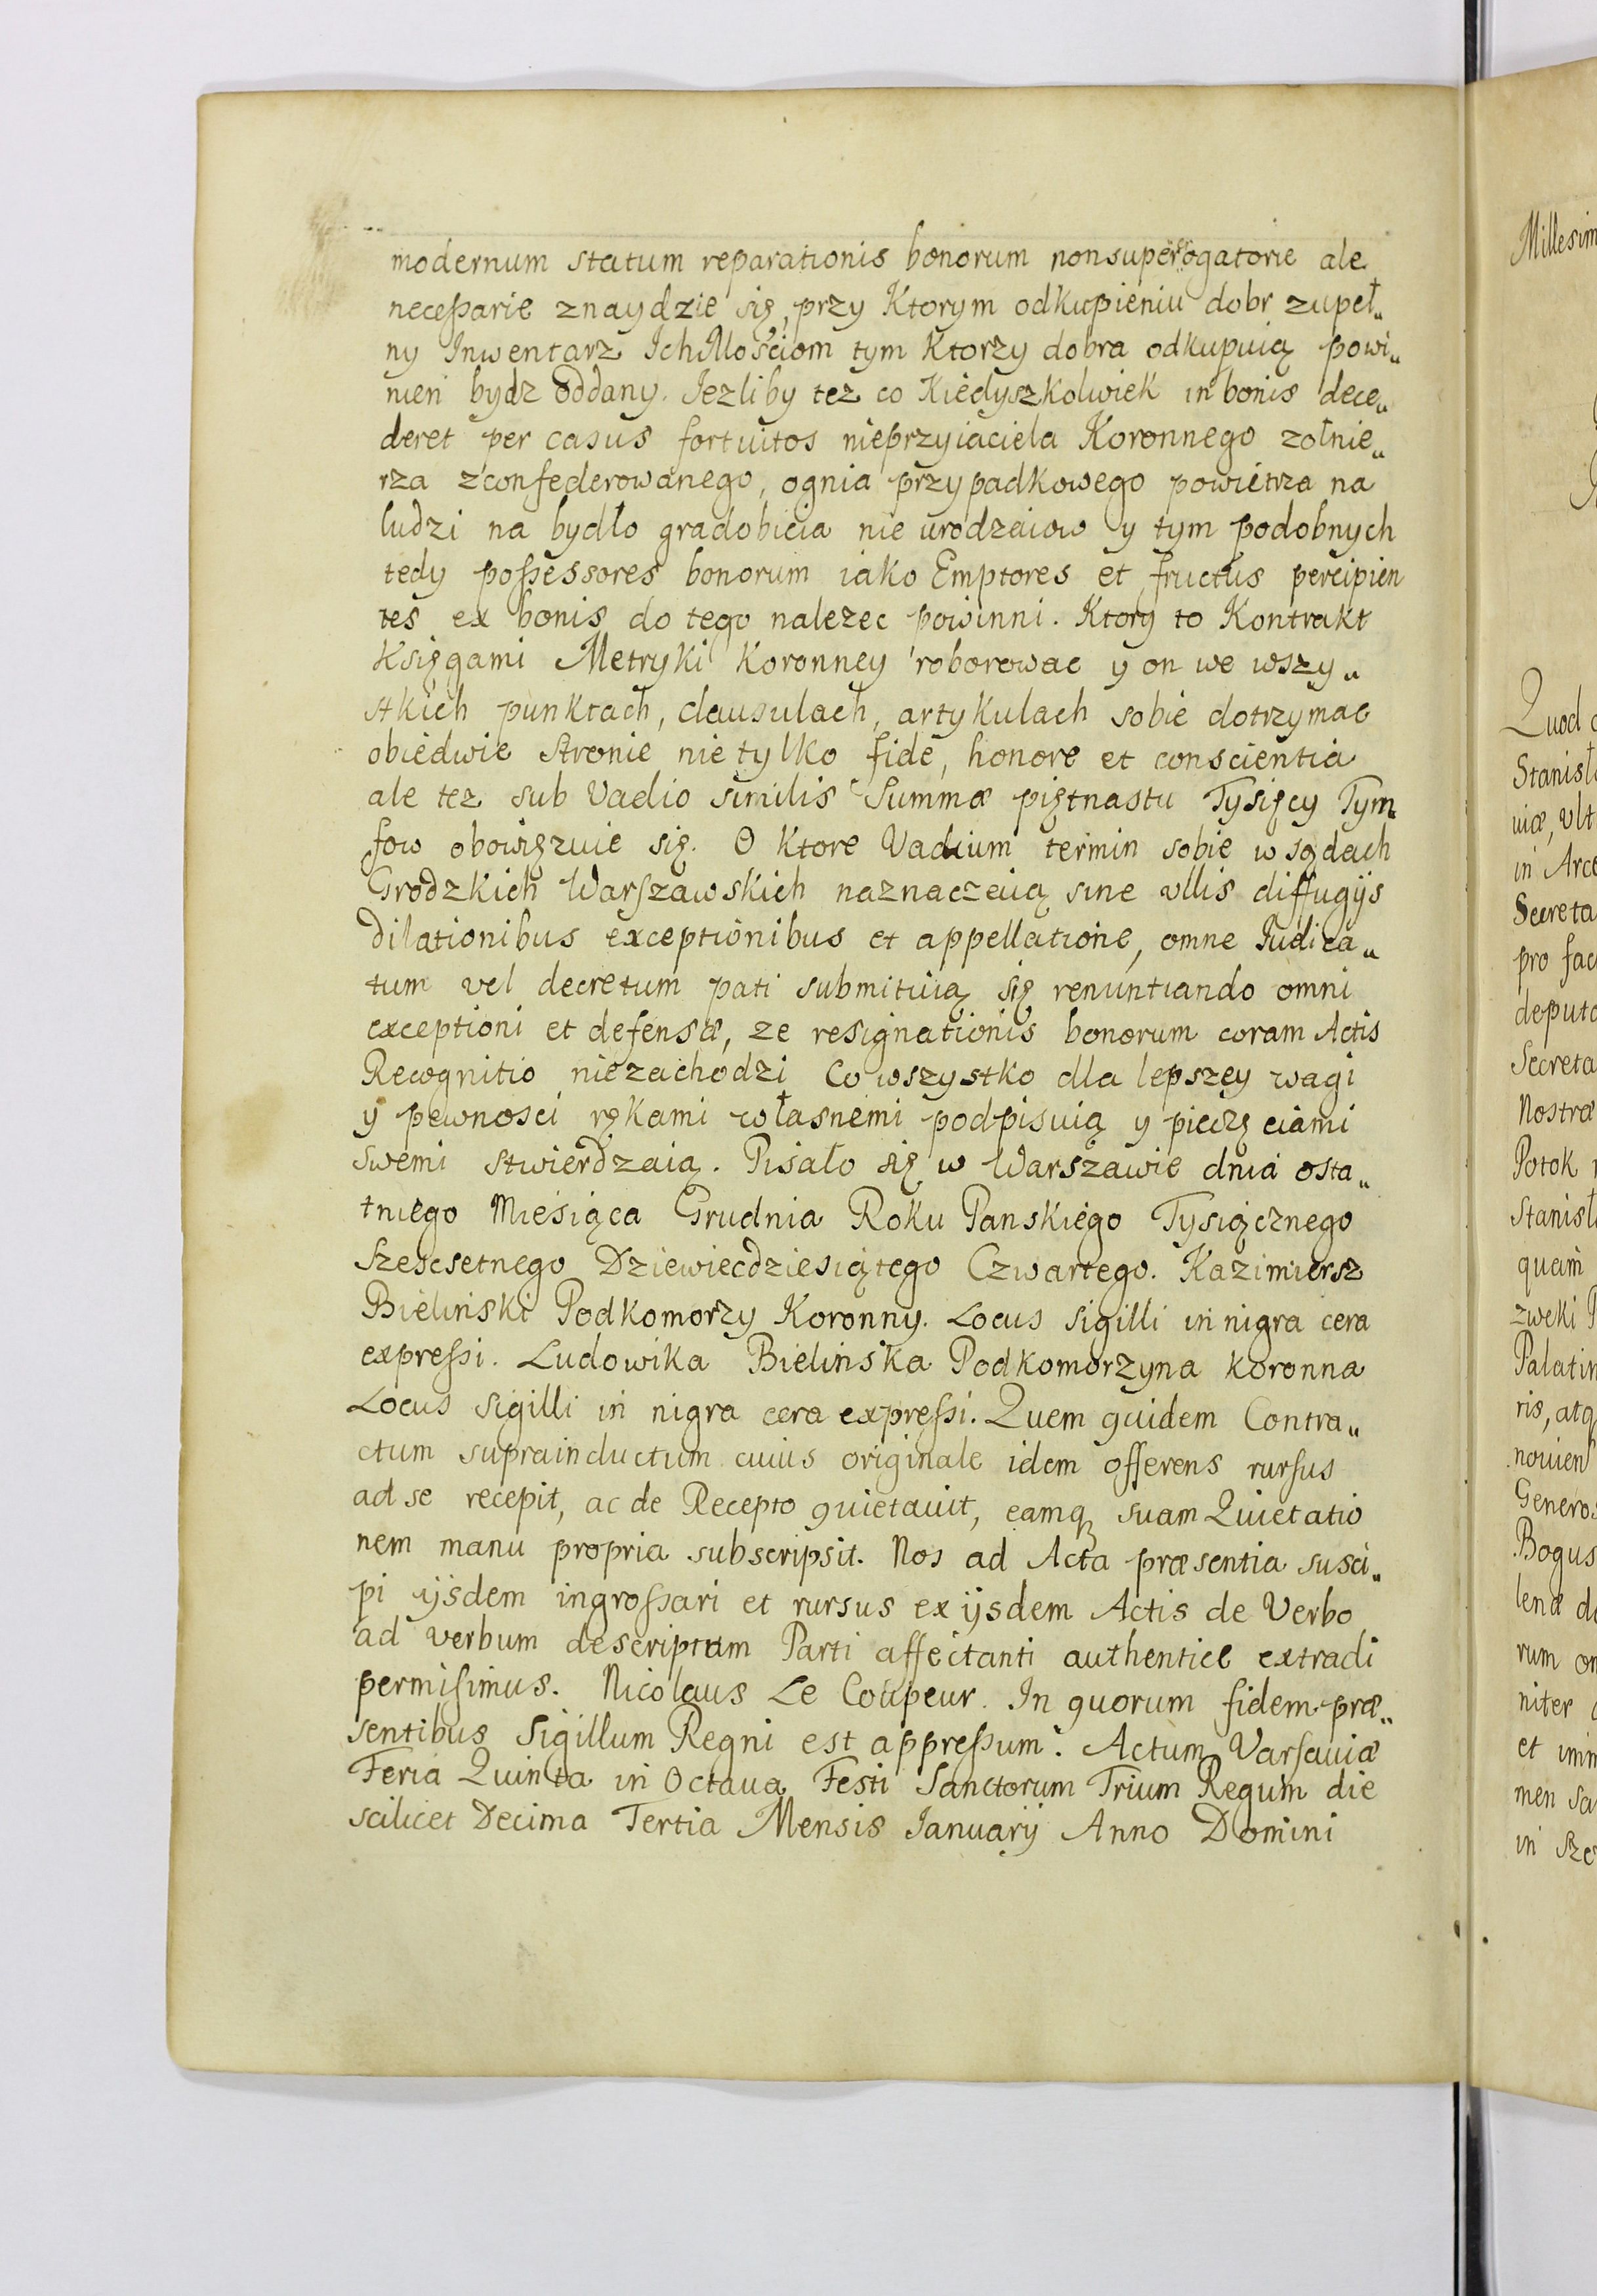 modernum statum reparationis bonorum nonsupererogatorie ale
necessarie znaydzie się, przy Ktorym odkupieniu dobr zupeł„
ny Inwentarz IchMłościom tym Ktorzy dobra odkupuią powi„
nien bydz oddany. Iezliby tez co Kiedyszkolwiek in bonis dece„
deret per casus fortuitos nieprzyiaciela Koronnego zołnie„
rza zconfederowanego, ognia przypadkowego powietrza na
ludzi na bydło gradobicia nie urodzaiow y tym podobnych
tedy possessores bonorum iako Emptores et fructus percipien
tes ex bonis do tego nalezec powinni. Ktory to Kontrakt
Księgami Metryki Koronney roborowac y on we wszy„
stkich punktach, clausulach, artykulach sobie dotrzymac
obiedwie stronie nie tylko fide, honore et conscientia
ale tez sub Vadio similis Summæ piętnastu Tysięcy Tym„
fow obowięzuie się. O Ktore Vadium termin sobie w sądach
Grodzkich Warszawskich naznaczaią sine ullis diffugijs
dilationibus exceptionibus et appellatione, omne Iudica„
tum vel decretum pati submituią się renuntiando omni
exceptioni et defensæ, ze resignationis bonorum coram Actis
Recognitio niezachodzi Co wszystko dla lepszey wagi
y pewnosci rękami własnemi podpisuią y pieczęciami
swemi stwierdzaią. Pisało się w Warszawie dnia osta„
tniego Miesiąca Grudnia Roku Panskiego Tysiącznego
Szescsetnego Dziewiecdziesiątego Czwartego. Kazimiersz
Bielinski Podkomorzy Koronny. Locus Sigilli in nigra cera
expressi. Ludowika Bielinska Podkomorzyna koronna
Locus Sigilli in nigra cera expressi. Quem quidem Contra„
ctum suprainductum cuius originale idem offerens rursus
ad se recepit, ac de Recepto quietauit, eamq suam Quietatio
nem manu propria subscripsit. Nos ad Acta præsentia susci„
pi ijsdem ingrossari et rursus ex ijsdem Actis de Verbo
ad verbum descriptum Parti affectanti authentice extradi
permisimus. Nicolaus Le Coupeur. In quorum fidem præ„
sentibus Sigillum Regni est appressum. Actum Varsauiæ
Feria Quinta in Octaua Festi Sanctorum Trium Regum die
scilicet Decima Tertia Mensis Ianuarij Anno Domini
Millesim
Quod
Stanisł
uiæ, Vlt
in Arce
Secreta
pro fac
deputa
Secreta
Nostræ
Potok
Stanisł
quam
zweki P
Palatin
ris, atq
nouien
Generos
Bogus
lenæ de
rum on
niter
et inim
men sa
in Sze